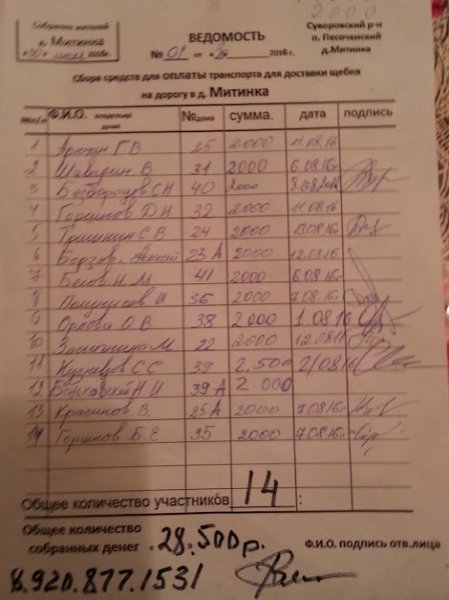 2000
Собрание жителей
д. Митинка
2016г.
ВЕДОМОСТЬ
№ 01 от 30 2016 г.
Суворовский р-н
п. Песоченский
д.Митинка
Сбора средств для оплаты транспорта для доставки щебня
на дорогу в д. Митинка
Ф.И.О. владельца дома №дома сумма. дата подпись
1 Г.В 25 2000 11.08.16
2 В. 31 2000 6.08.16г
3 С.Н 40 2000
4 Горшков Д.Н 32 2000 11.08.16
5 Гришкин С.В 24 2000
6 23 А 2000 12.08.16
7 Белов Н.М 41 2000 6.08.16г
8 36 2000 7.08.16г
9 Орлова О.В 38 2000 1.08.16
10 22 2000 12.08.16
11 Кузнецов С.С 39 2.500 2/08.16
12 Н.И. 39 А 2.000
13 Красиков В. 25 А 2000 7.08.16г
14 Горшков Б.Е 35 2000 7.08.16г
Общее количество участников 14 :
Общее количество
собранных денег 28.500р.
Ф.И.О. подпись отв.лица
8.920.877.1531